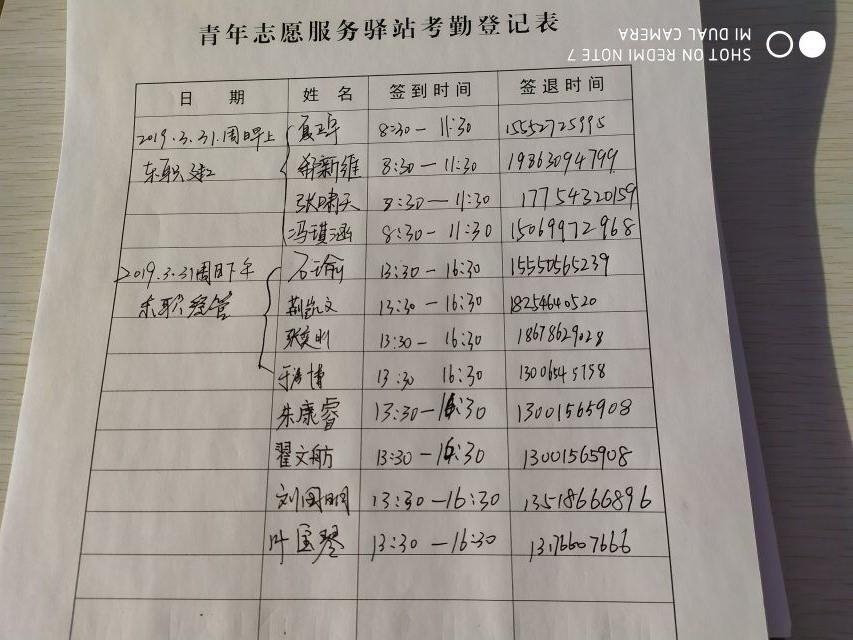 青年志愿服务驿站考勤登记表
SHOT ON REDMI NOTE 7
MI DUAL CAMERA
日 期 姓 名 签到时间 签退时间
2019.3.31.周日早上 8:30-11:30 15552725995
东职 郑新维 8:30-11:30 19863094799
张啸天 8:30-11:30 17754320159
冯琪涵 8:30-11:30 15069972968
2019.3.31周日下午 石瑜 13:30-16:30 15550565239
东职经管 荆凯文 13:30-16:30 18254640520
13:30-16:30 18678629028
于海博 13:30 16:30 13006545158
朱康睿 13:30-16:30 13001565908
翟文舫 13:30-16:30 13001565908
刘国明 13:30-16:30 13518666896
叶国琴 13:30-16:30 13176607666